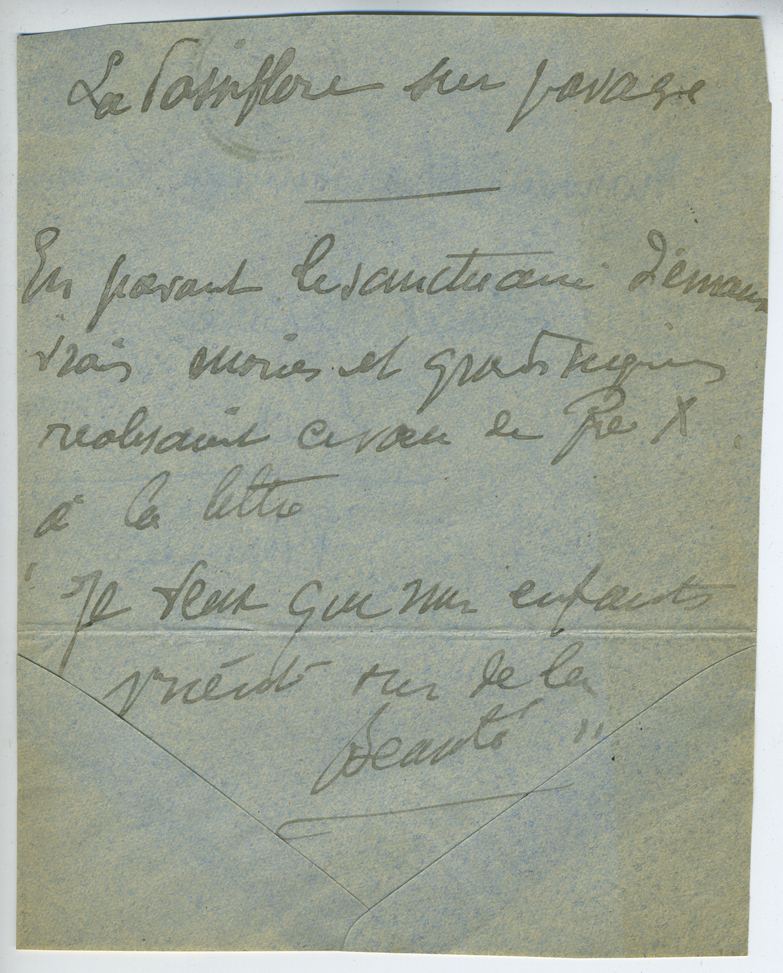 La Passiflore sur pavage
En pavant le sanctuaire d'émaux
vrais moires et grands
réalisaient ce vœu de Pie X
à la lettre
"Je veux que mes enfants
prient sur de la
Beauté"